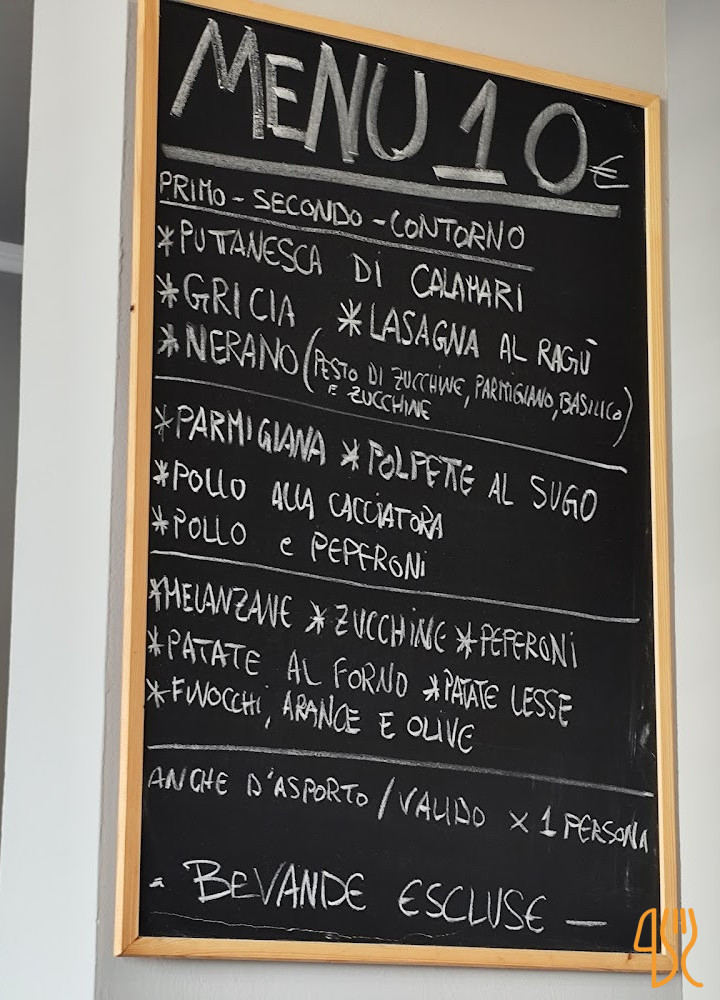 MENU 10€
PRIMO - SECONDO - CONTORNO
*PUTTANESCA DI CALAMARI
*GRICIA *LASAGNA AL RAGÙ
*NERANO (PESTO DI ZUCCHINE, PARMIGIANO, BASILICO)
E ZUCCHINE
*PARMIGIANA *POLPETTE AL SUGO
*POLLO ALLA CACCIATORA
*POLLO e PEPERONI
*MELANZANE *ZUCCHINE *PEPERONI
*PATATE AL FORNO *PATATE LESSE
*FINOCCHI, ARANCE E OLIVE
ANCHE D'ASPORTO / VALIDO x 1 PERSONA
- BEVANDE ESCLUSE -